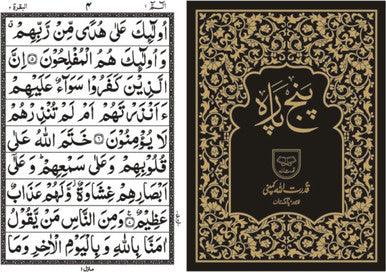 البقرة ٢
٤
الٓمّٓ ١
اُولٰٓئِكَ عَلٰى هُدًى مِّنْ رَّبِّهِمْ ۗ
وَاُولٰٓئِكَ هُمُ الْمُفْلِحُوْنَ ۝ اِنَّ
الَّذِيْنَ كَفَرُوْا سَوَآءٌ عَلَيْهِمْ
ءَاَنْذَرْتَهُمْ اَمْ لَمْ تُنْذِرْهُمْ
لَا يُؤْمِنُوْنَ ۝ خَتَمَ اللّٰهُ عَلٰى
قُلُوْبِهِمْ وَعَلٰى سَمْعِهِمْ ۗ وَعَلٰٓى
اَبْصَارِهِمْ غِشَاوَةٌ ۖ وَّلَهُمْ عَذَابٌ
عَظِيْمٌ ۝ وَمِنَ النَّاسِ مَنْ يَّقُوْلُ
اٰمَنَّا بِاللّٰهِ وَبِالْيَوْمِ الْاٰخِرِ وَمَا
منزل ١
پنج پارہ
قدرت اللہ کمپنی
لاہور پاکستان